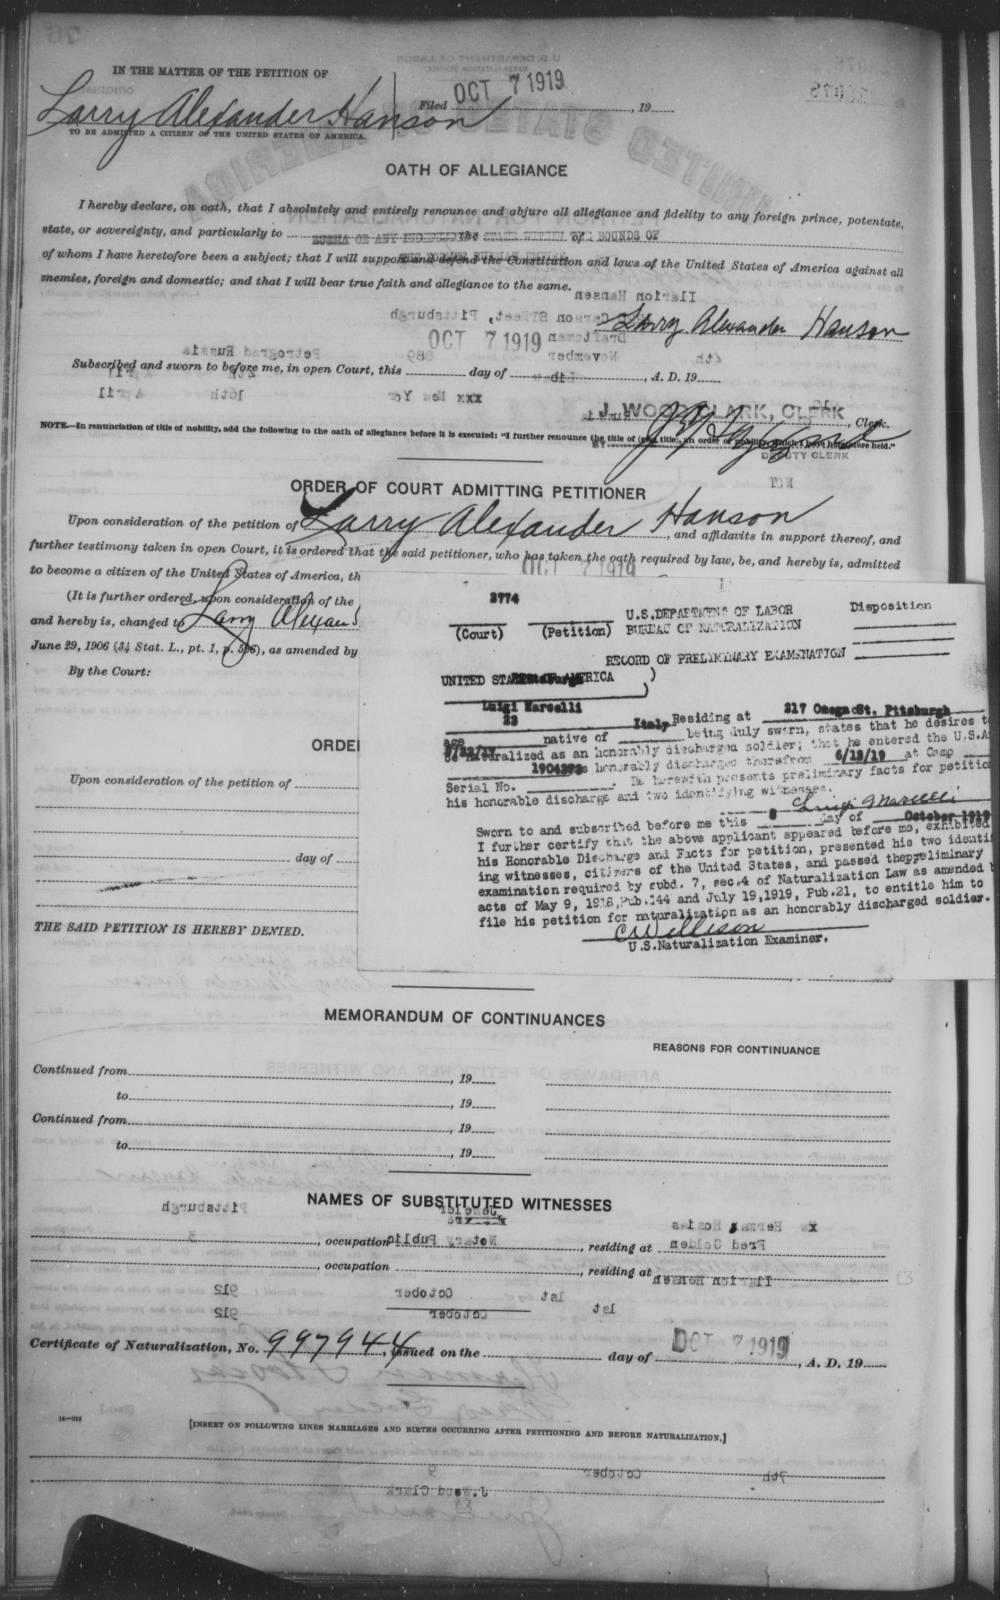 IN THE MATTER OF THE PETITION OF
Larry Alexander Hanson
Filed OCT 7 1919, 19
TO BE ADMITTED A CITIZEN OF THE UNITED STATES OF AMERICA.
OATH OF ALLEGIANCE
I hereby declare, on oath, that I absolutely and entirely renounce and abjure all allegiance and fidelity to any foreign prince, potentate,
state, or sovereignty, and particularly to RUSSIA OR ANY the STATE WITHIN THE BOUNDS OF
THE FORMER RUSSIAN EMPIRE
of whom I have heretofore been a subject; that I will support and defend the Constitution and laws of the United States of America against all
enemies, foreign and domestic; and that I will bear true faith and allegiance to the same.
Larry Alexander Hanson
OCT 7 1919
Subscribed and sworn to before me, in open Court, this day of , A. D. 19
J. WOOD CLARK, CLERK, Clerk.
NOTE.—In renunciation of title of nobility, add the following to the oath of allegiance before it is executed: "I further renounce the title of (give title), an order of nobility, which I have heretofore held."
DEPUTY CLERK
ORDER OF COURT ADMITTING PETITIONER
Upon consideration of the petition of Larry Alexander Hanson, and affidavits in support thereof, and
further testimony taken in open Court, it is ordered that the said petitioner, who has taken the oath required by law, be, and hereby is, admitted
to become a citizen of the United States of America, th
OCT 7 1919
(It is further ordered, upon consideration of the
and hereby is, changed to Larry Alexan
June 29, 1906 (34 Stat. L., pt. 1, p. 596), as amended by
By the Court:
2774
(Court) (Petition)
U.S.DEPARTMENT OF LABOR
BUREAU OF NATURALIZATION
Disposition
RECORD OF PRELIMINARY EXAMINATION
UNITED STATES OF AMERICA )
Pittsburgh
)
Luigi Marcelli
23 Italy Residing at 217 Omega St. Pitsburgh
age native of being duly sworn, states that he desires t
be naturalized as an honorably discharged soldier; that he entered the U.S.A
honorably discharged therefrom 6/13/19 at Camp
Serial No. He herewith presents preliminary facts for petitio
his honorable discharge and two identifying witnesses.
Luigi Marcelli
Sworn to and subscribed before me this 8 day of October 1919
I further certify that the above applicant appeared before me, exhibited
his Honorable Discharge and Facts for petition, presented his two identi
ing witnesses, citizens of the United States, and passed thepreliminary
examination required by subd. 7, sec.4 of Naturalization Law as amended b
acts of May 9, 1918,Pub.144 and July 19,1919, Pub.21, to entitle him to
file his petition for naturalization as an honorably discharged soldier.
C Wellison
U.S.Naturalization Examiner.
ORDE
Upon consideration of the petition of
day of
THE SAID PETITION IS HEREBY DENIED.
MEMORANDUM OF CONTINUANCES
REASONS FOR CONTINUANCE
Continued from , 19
to , 19
Continued from , 19
to , 19
NAMES OF SUBSTITUTED WITNESSES
, occupation , residing at
, occupation , residing at
Certificate of Naturalization, No. 997944, issued on the day of OCT 7 1919, A. D. 19
16—215
[INSERT ON FOLLOWING LINES MARRIAGES AND BIRTHS OCCURRING AFTER PETITIONING AND BEFORE NATURALIZATION.]